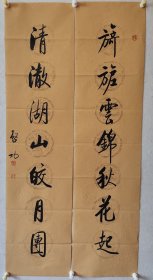 旖旎雲錦秋花起
清澈湖山皎月團
啓功